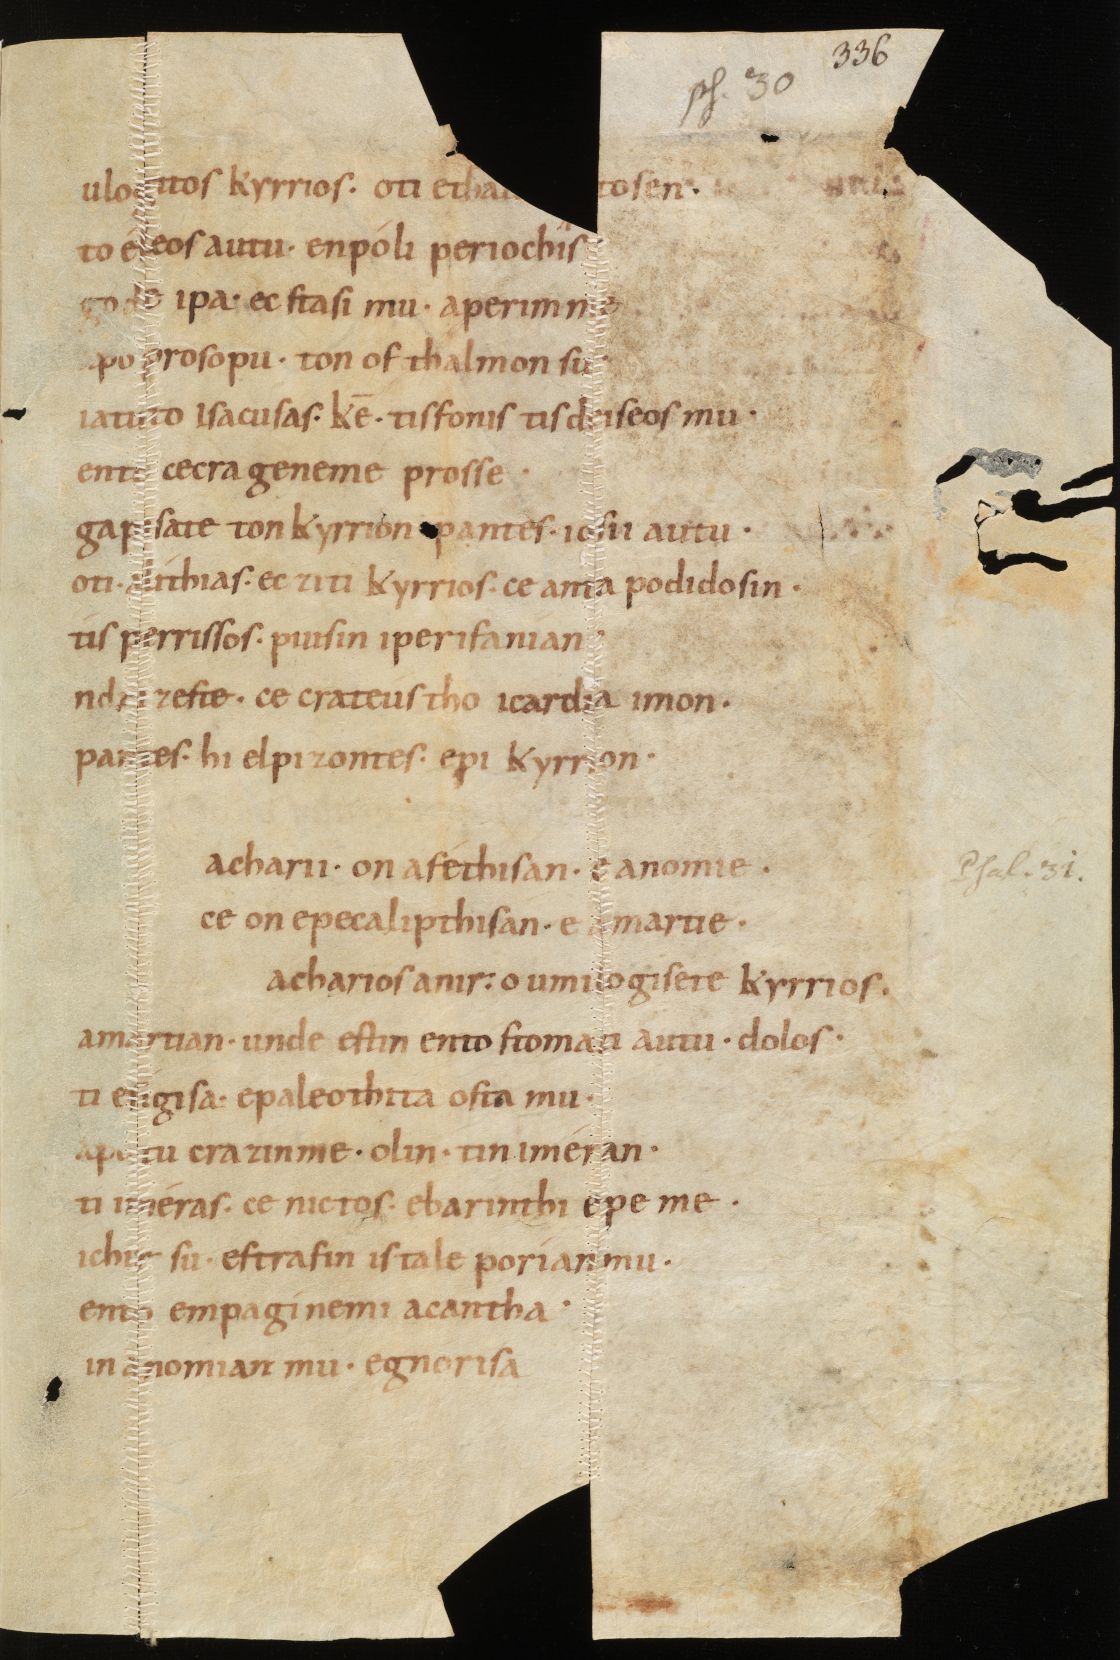 336
ps. 30
ulogitos kyrrios. oti ethau tosen.
to eleos autu. enpóli periochis
go de ipa. ec stasi mu. aperimme
apo prosopu. ton of thalmon su.
iatuto Isacusas. kē. tis fonis tis deiseos mu.
ento cecra geneme prosse.
gapisate ton kyrrion. pantes. iosii autu.
oti. alithias. ec ziti kyrrios. ce anta podidosin.
tis perrissos. piuisin iperifanian.
ndrizeste. ce crateustho icardia imon.
pantes. hi elpizontes. epi kyrrion.
acharii. on aféthisan. e anomie.
ce on epecalipthisan. e amartie.
acharios anir. o umilogisete kyrrios.
Psal. 31.
amartian. unde estin ento stomati autu. dolos.
ti esigisa. epaleothita osta mu.
apo tu crazinme. olin. tin iméran.
ti iméras. ce nictos. ebarinthi epe me.
ichir su. estrafin is tale porian mu.
ento empaginemi acantha.
in anomian mu. egnorisa